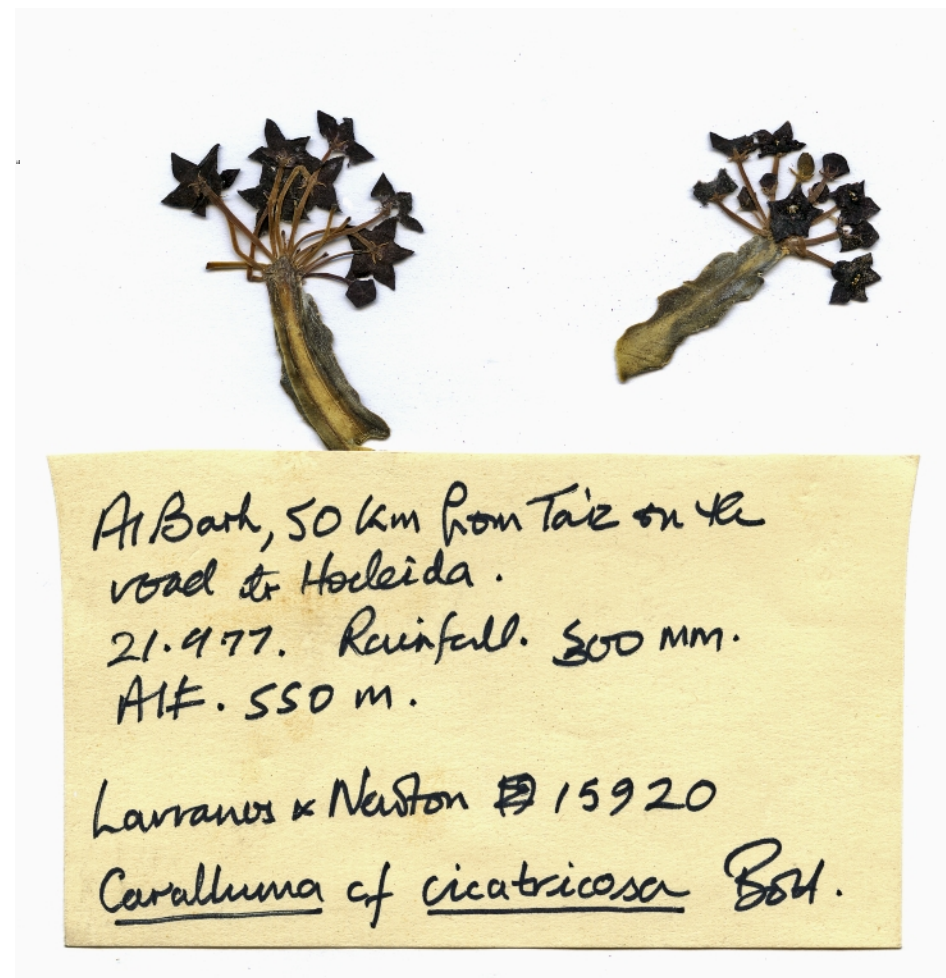 Al Barh, 50 km from Ta'iz on the
road to Hodeida.
21.9 77. Rainfall. 300 mm.
Alt. 550 m.
Lavranos & Newton 15920
Caralluma cf cicatricosa